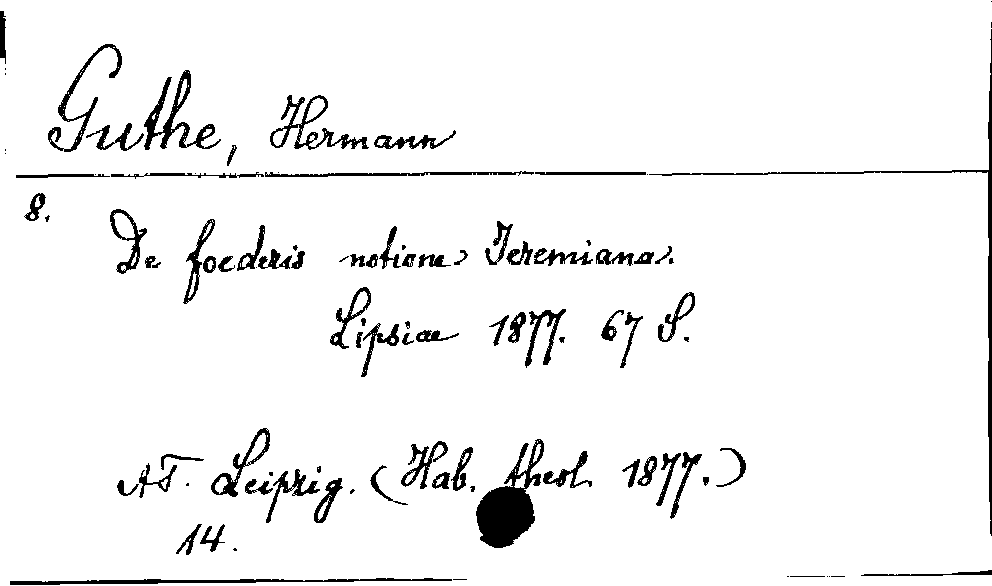 Guthe, Hermann
8.
De foederis notione Jeremiana.
Lipsiae 1877. 67 S.
AT. Leipzig. (Hab. theol. 1877.)
14.